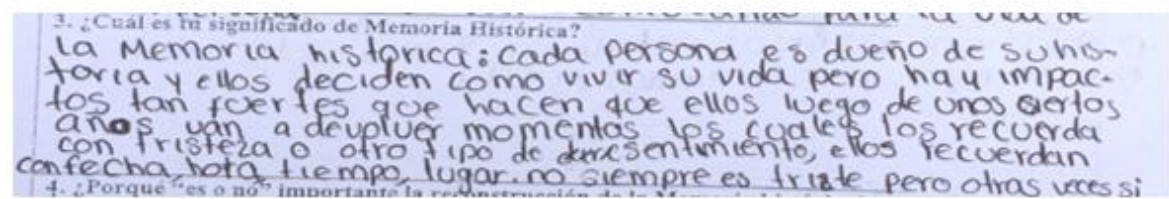 3. ¿Cuál es tu significado de Memoria Histórica?
La Memoria historica: cada persona es dueño de su his-
toria y ellos deciden como vivir su vida pero hay impac-
tos tan fuertes que hacen que ellos luego de unos ciertos
años van a devolver momentos los cuales los recuerda
con tristeza o otro tipo de sentimiento, ellos recuerdan
con fecha, hora, tiempo, lugar. no siempre es triste pero otras veces si
4. ¿Porqué "es o no" importante la reconstrucción de la